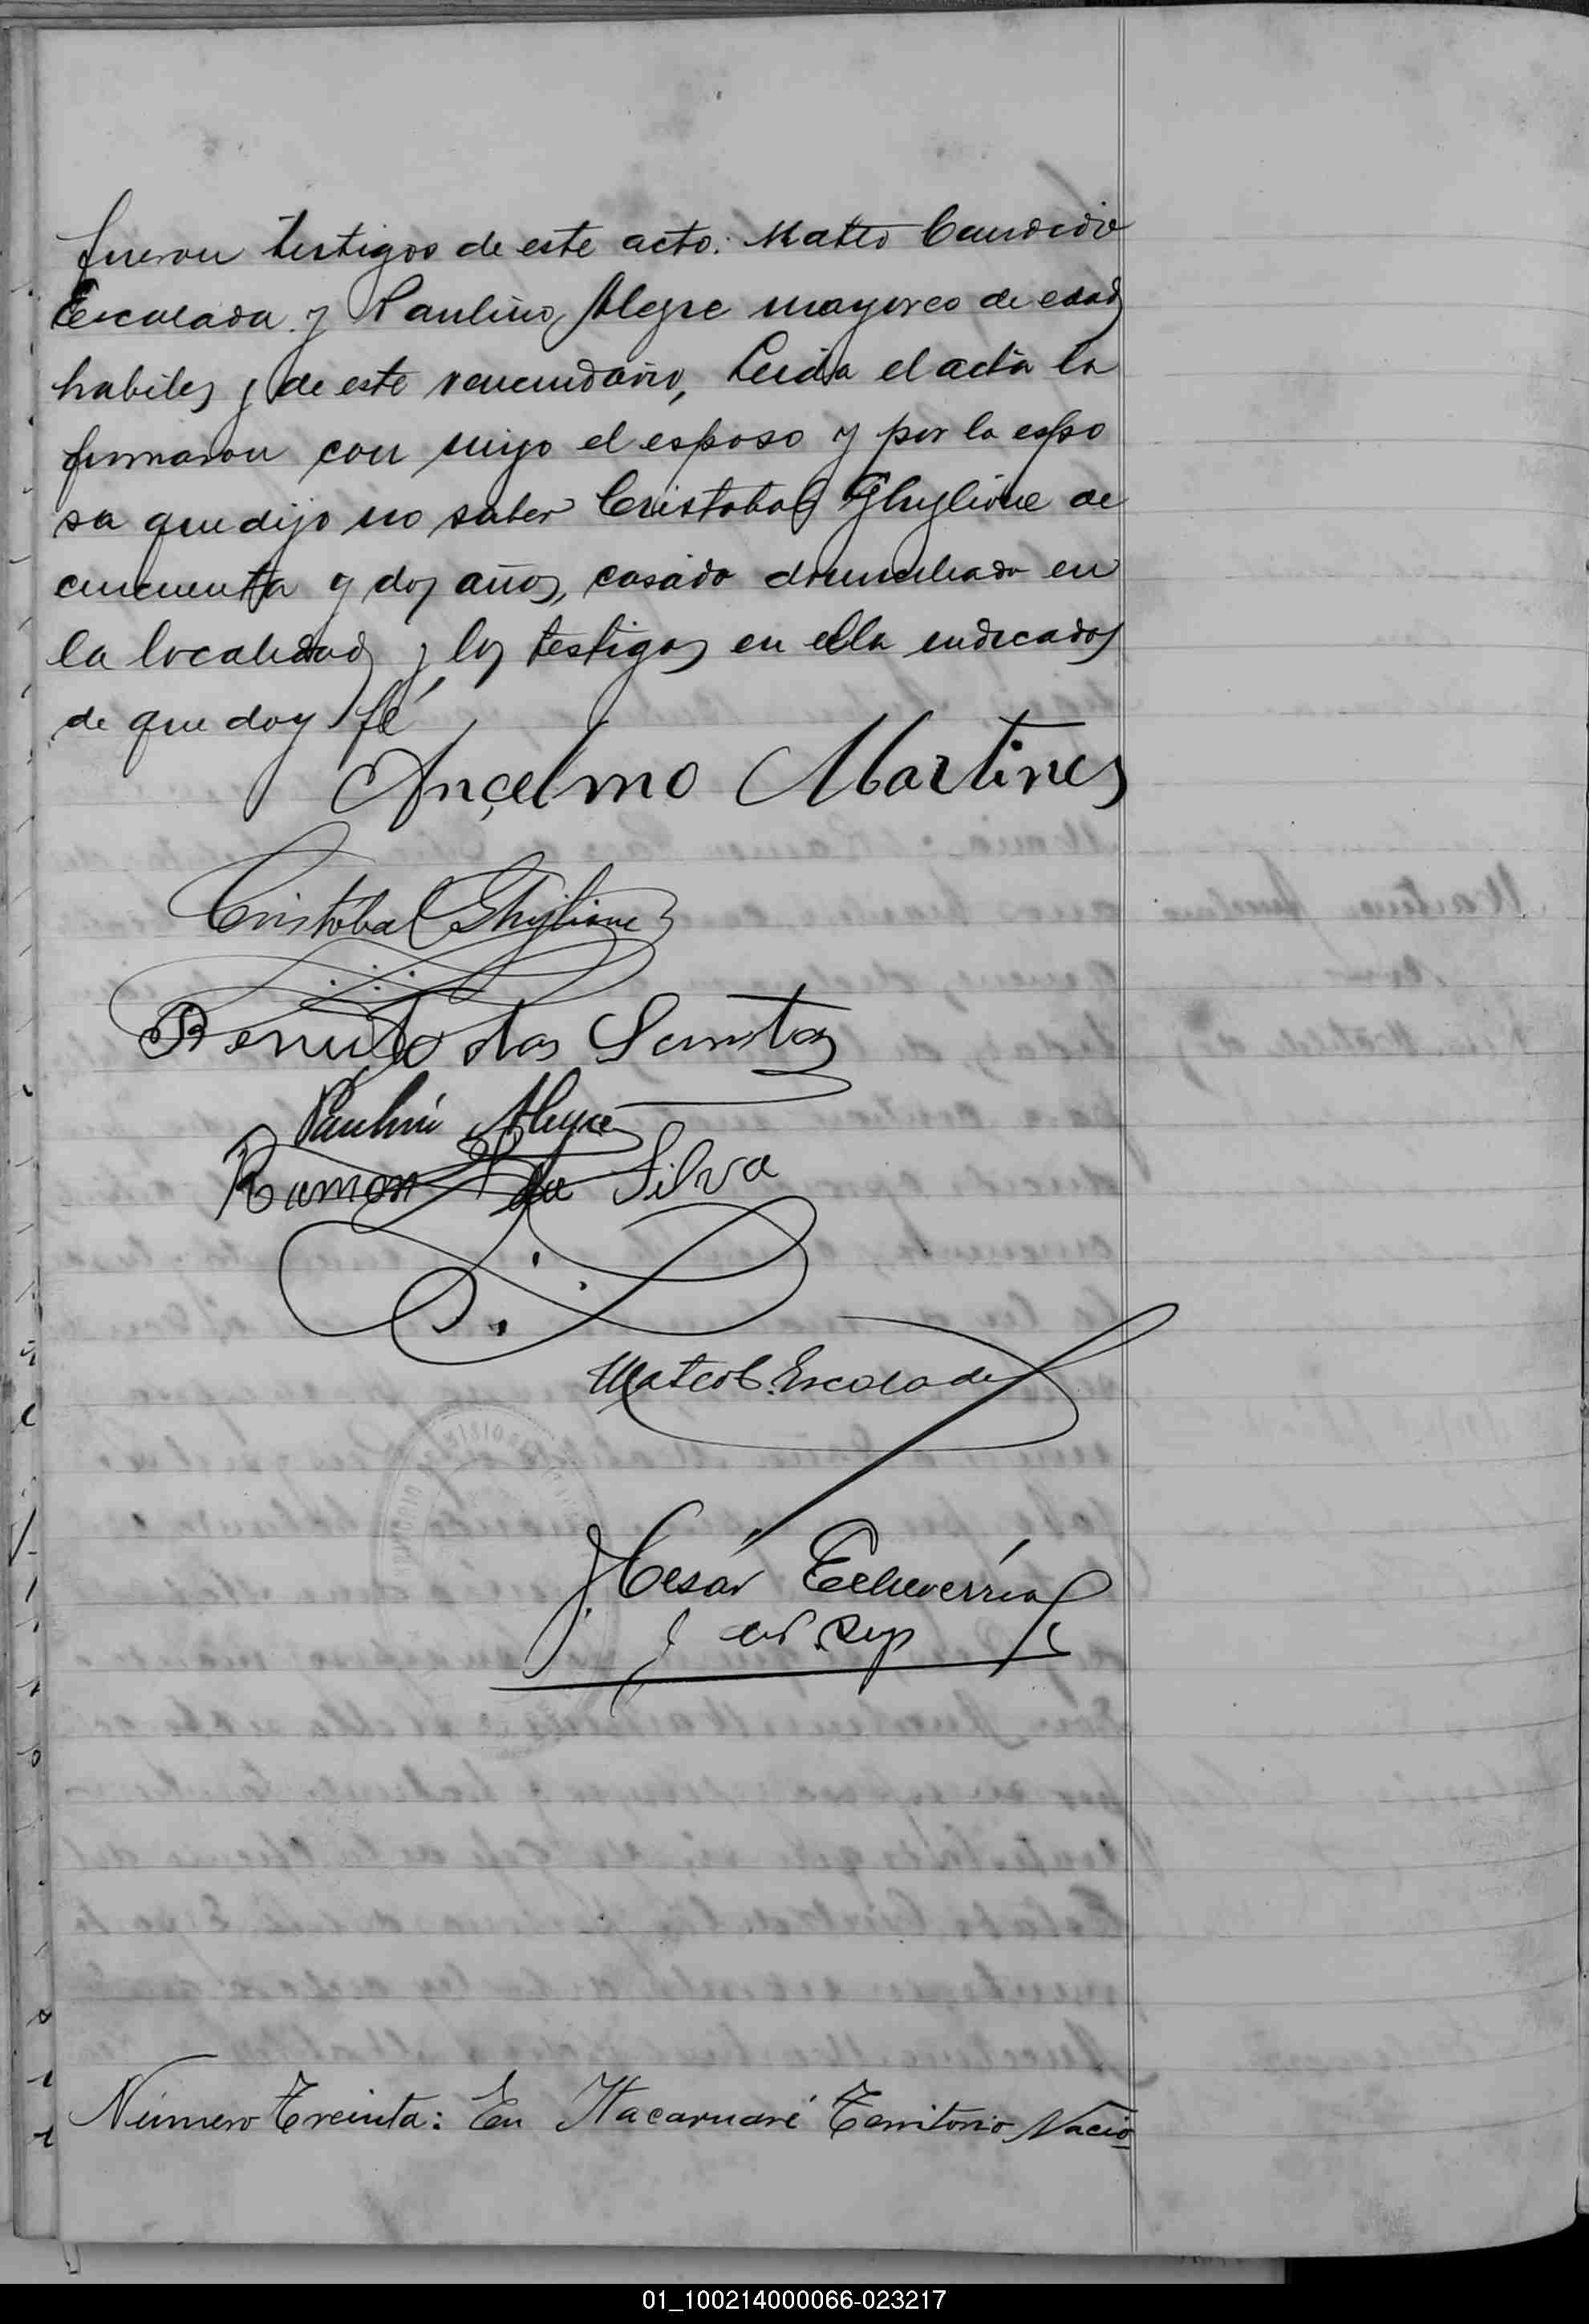 fueron testigos de este acto: Mateo Candido
Escalada y Paulino Alegre mayores de edad
habiles y de este vecindario, Leida el acta la
firmaron con migo el esposo y por la espo
sa que dijo no saber Cristobal Ghyglione de
cincuenta y dos años, casado domiciliado en
la localidad y los testigos en ella indicados
de que doy fé
Ançelmo Martines
Cristóbal Ghyglione
Benito dos Santos
Paulino Alegre
Ramon da Silva
Mateo C. Escalada
J. César Echeverría
Número Treinta: En Itacaruaré Territorio Nacio
01_100214000066-023217